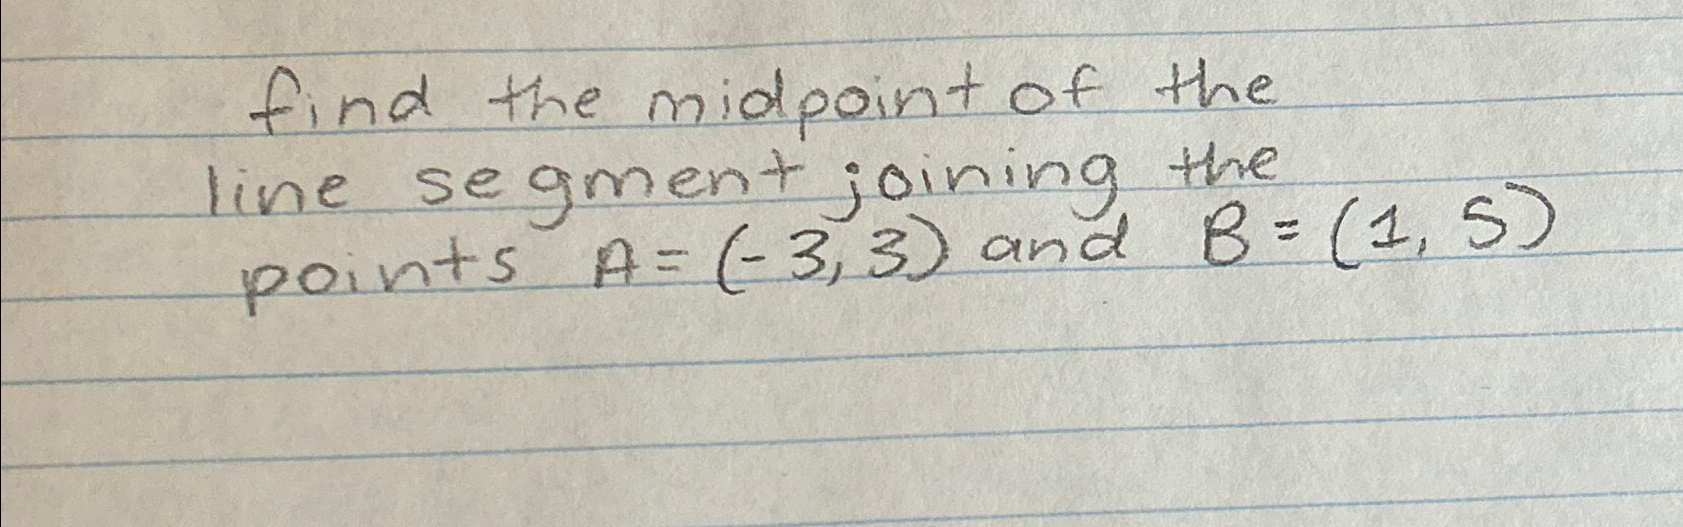 find the midpoint of the
line segment joining the
points A = (-3, 3) and B = (1, 5)